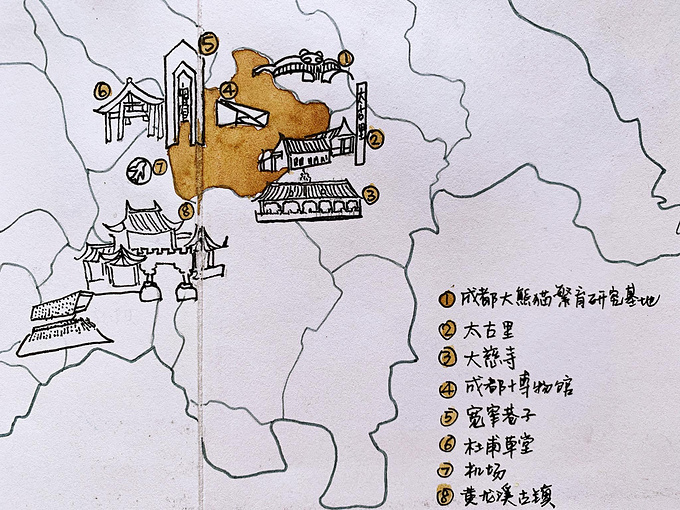 ⑤
①
⑥
④
太古里
②
⑦
③
⑧
① 成都大熊猫繁育研究基地
② 太古里
③ 大慈寺
④ 成都博物馆
⑤ 宽窄巷子
⑥ 杜甫草堂
⑦ 机场
⑧ 黄龙溪古镇